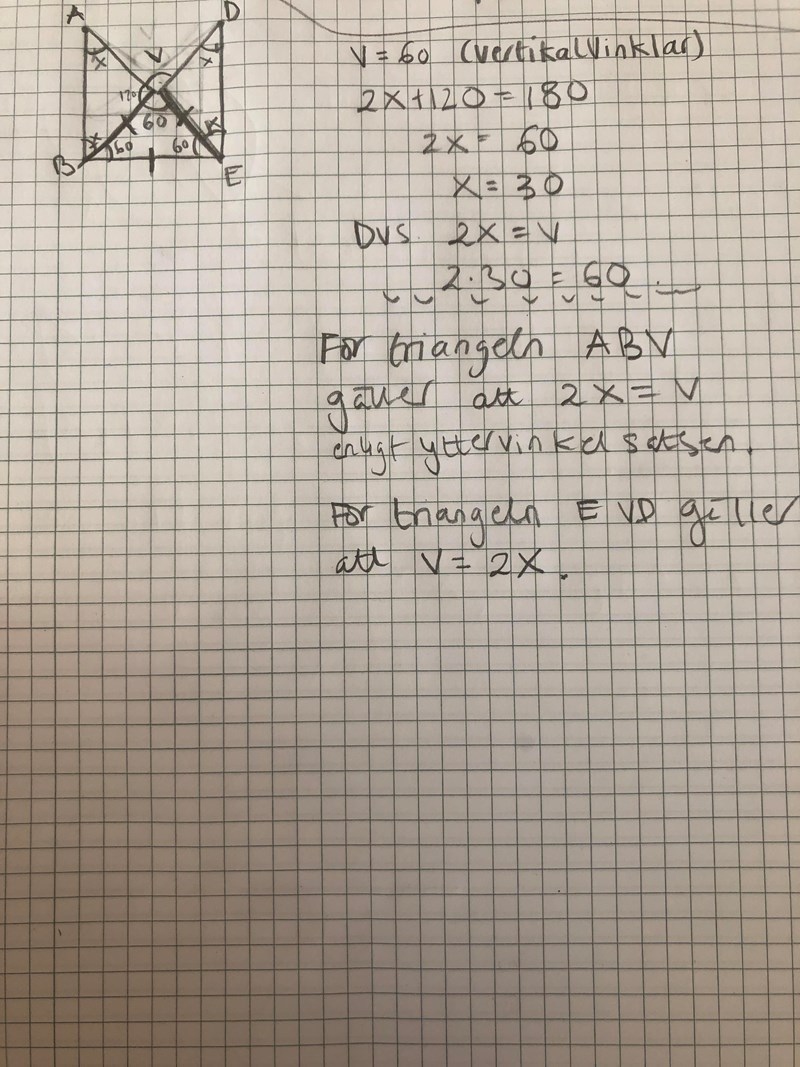 A
D
V
x
x
120
60
x
x
60
60
B
E
V = 60 (vertikalvinklar)
2x+120=180
2x= 60
x=30
DVS. 2x=V
2·30=60
För triangeln ABV
gäller att 2x=V
enligt yttervinkel satsen.
För triangeln EVD gäller
att V=2x.